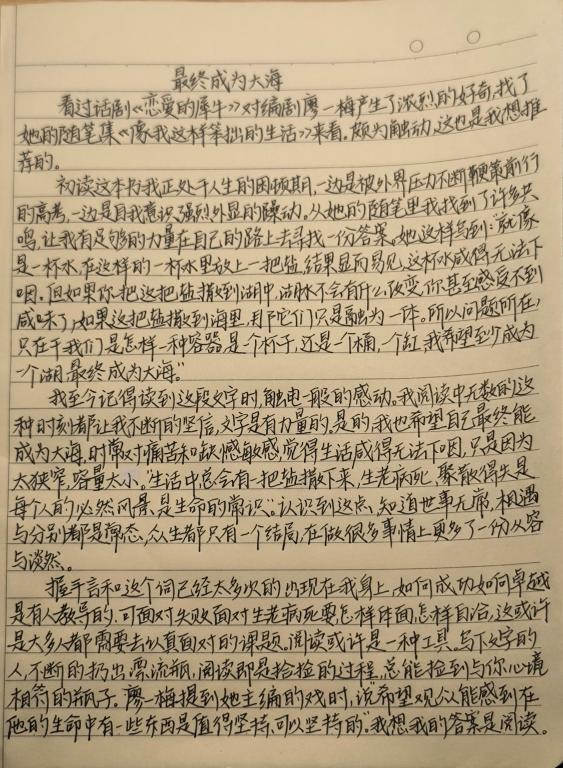 最终成为大海
看过话剧《恋爱的犀牛》对编剧廖一梅产生了浓烈的好奇,找了
她的随笔集《像我这样笨拙的生活》来看。颇为触动,这也是我想推
荐的。
初读这本书我正处于人生的困顿期,一边是被外界压力不断鞭策前行
的高考,一边是自我意识强烈外显的躁动。从她的随笔里我找到了许多共
鸣,让我有足够的力量在自己的路上去寻找一份答案。她这样写到:"就像
是一杯水,在这样的一杯水里放上一把盐,结果显而易见,这杯水咸得无法下
咽。但如果你把这把盐撒到湖中,湖水不会有什么改变,你甚至感受不到
咸味了;如果这把盐撒到海里,那它们只是融为一体。所以问题所在,
只在于我们是怎样一种容器,是个杯子,还是一个桶,一个缸,我希望至少成为
一个湖,最终成为大海。"
我至今记得读到这段文字时,触电一般的感动。我阅读中无数的这
种时刻都让我不断的坚信,文字是有力量的,是的,我也希望自己最终能
成为大海。时常对痛苦和缺憾敏感,觉得生活咸得无法下咽,只是因为
太狭窄,容量太小。"生活中总会有一把盐撒下来,生老病死,聚散得失是
每个人的必然风景,是生命的常识"。认识到这点,知道世事无常,相遇
与分别都是常态,众生都只有一个结局,在做很多事情上更多了一份从容
与淡然。
握手言和这个词已经太多次的出现在我身上,如何成功如何卓越
是有人教导的,可面对失败面对生老病死要怎样体面,怎样自洽,这或许
是大多人都需要去认真面对的课题。阅读或许是一种工具。写下文字的
人,不断的扔出漂流瓶,阅读即是拾捡的过程,总能捡到与你心境
相符的瓶子。廖一梅提到她主编的戏时,说"希望观众能感到在
他的生命中有一些东西是值得坚持,可以坚持的。"我想我的答案是阅读。